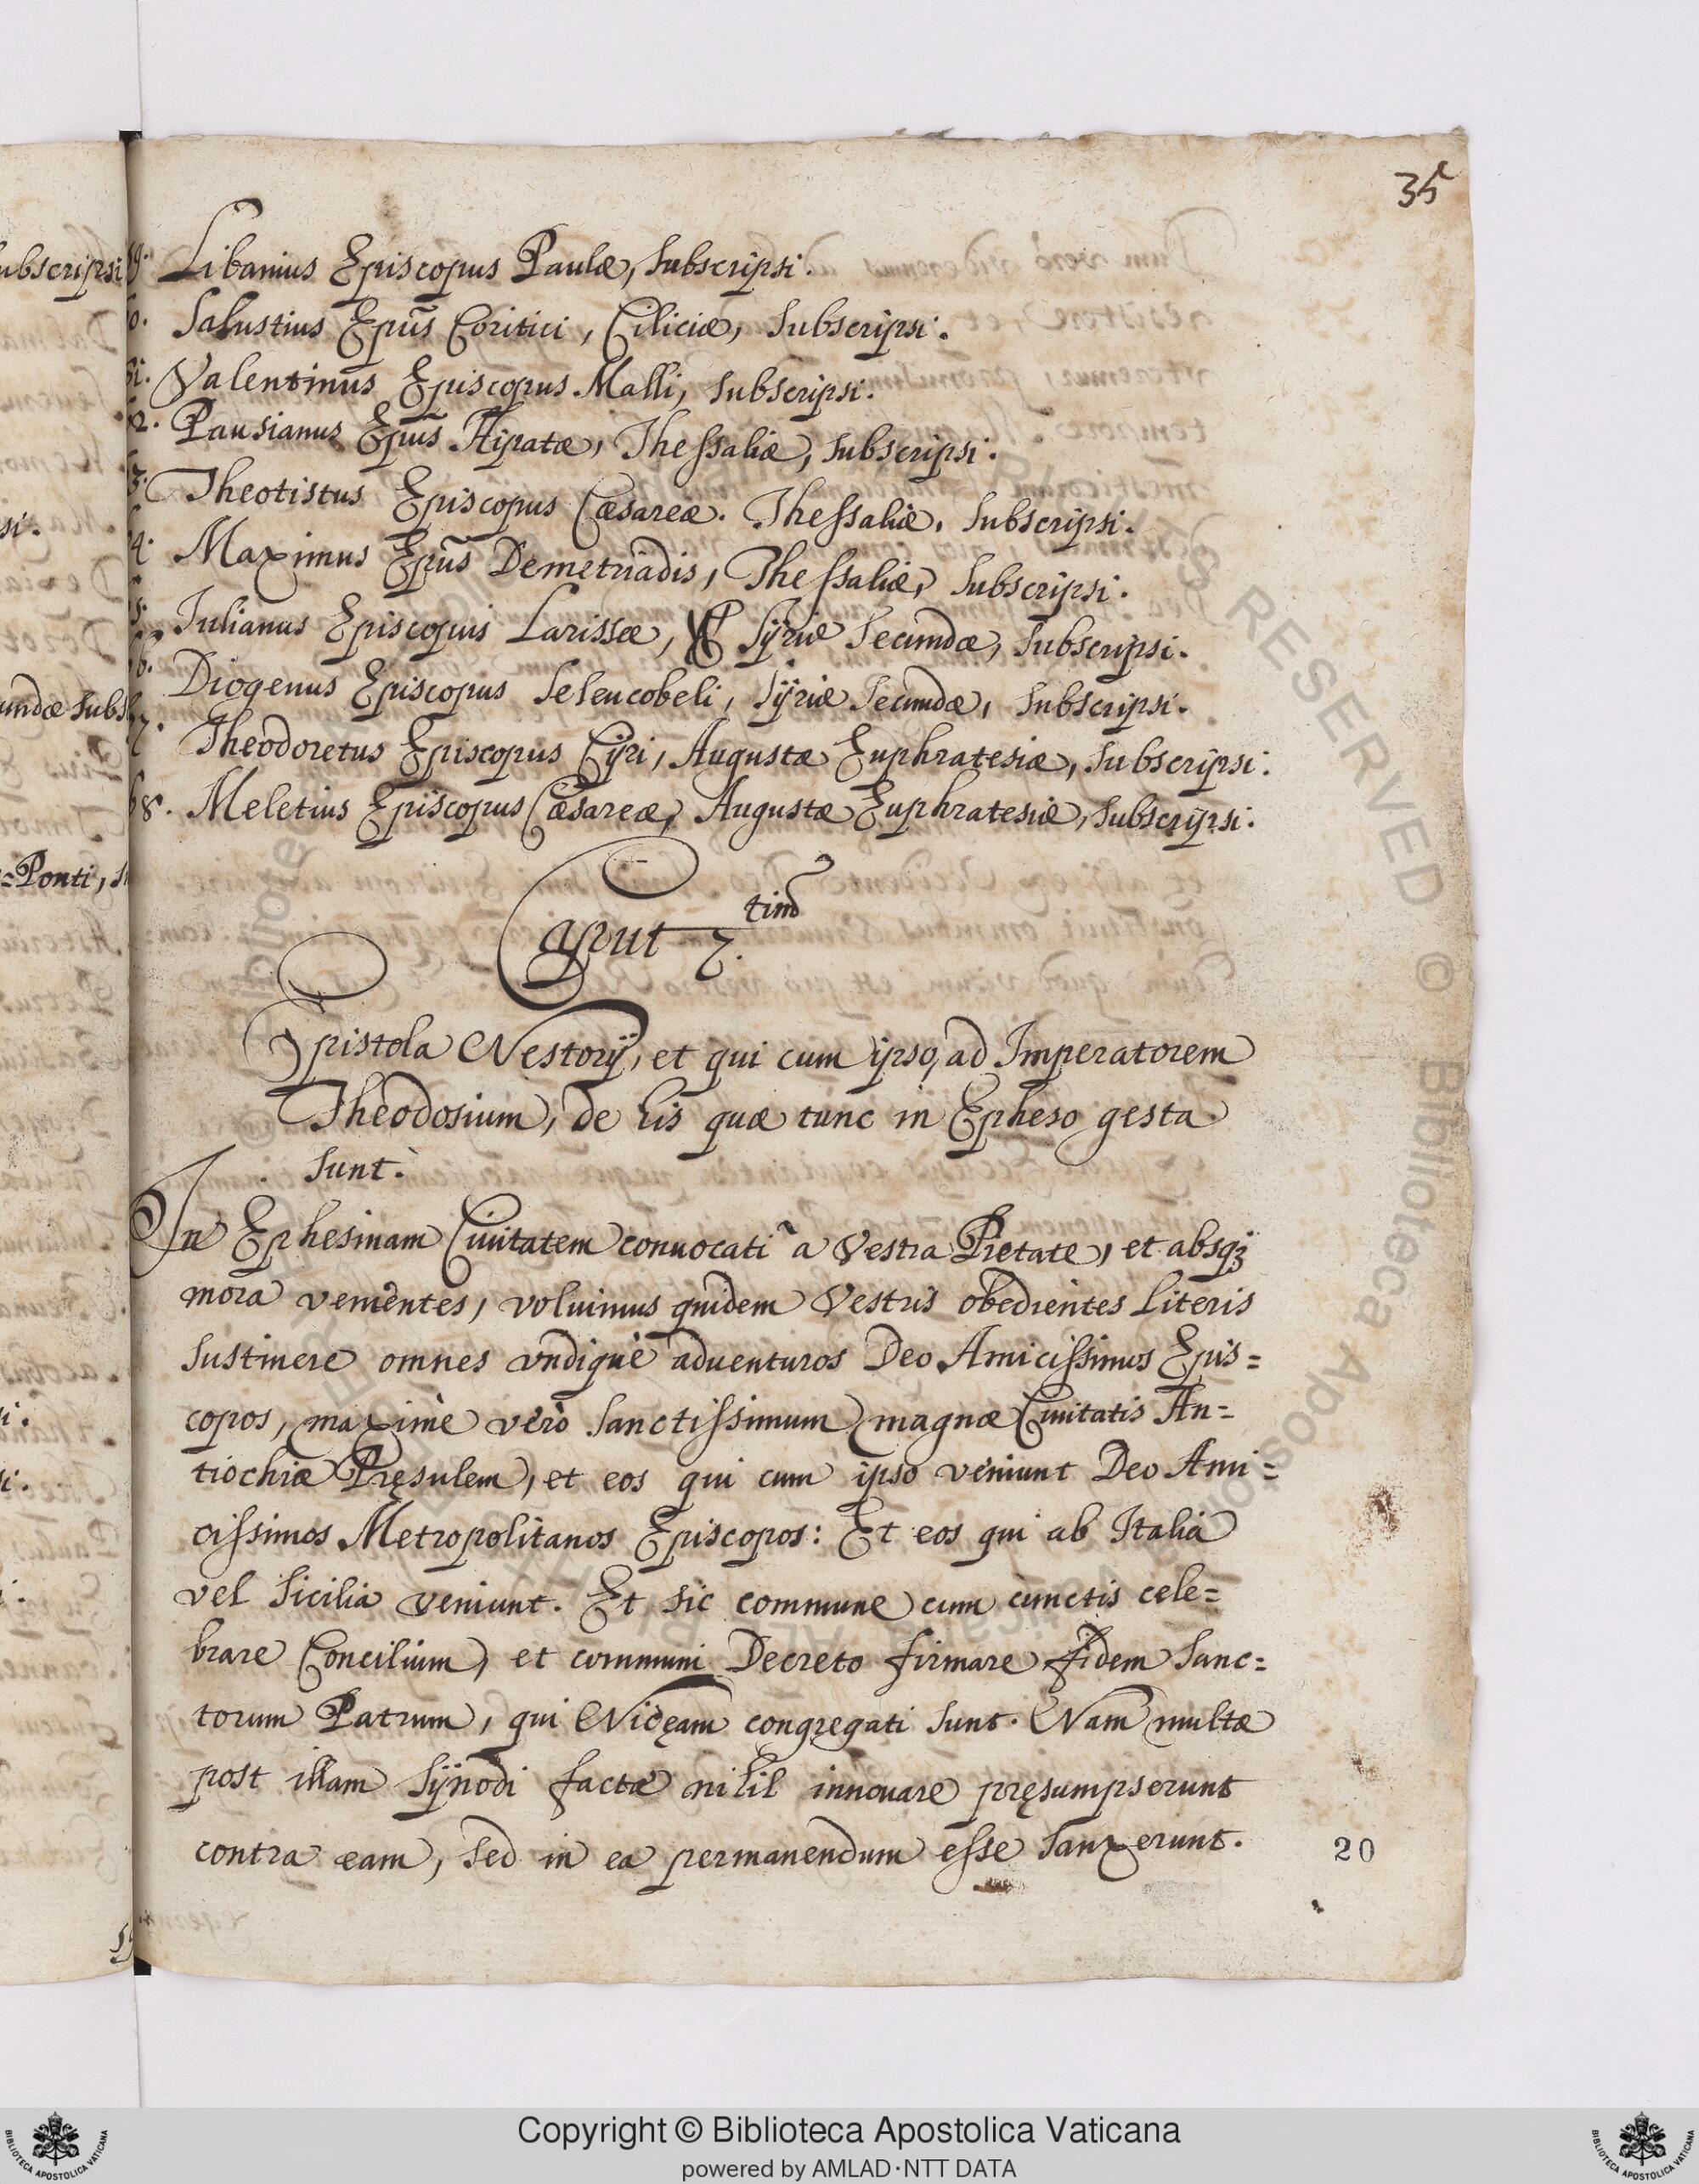 35
59. Libanius Episcopus Paulæ, subscripsi.
60. Salustius Epũs Coritici, Ciliciæ, subscripsi.
61. Valentinus Episcopus Malli, subscripsi.
62. Pausianus Epũs Hipatæ, Thessaliæ, subscripsi.
63. Theotistus Episcopus Cæsareæ. Thessaliæ, subscripsi.
64. Maximus Epũs Demetriadis, Thessaliæ, subscripsi.
65. Iulianus Episcopus Larissæ, Syriæ Secundæ, subscripsi.
66. Diogenus Episcopus Seleucobeli, Sÿriæ Secundæ, subscripsi.
67. Theodoretus Episcopus Cÿri, Augustæ Euphratesiæ, subscripsi.
68. Meletius Episcopus Cæsareæ, Augustæ Euphratesiæ, subscripsi.
Caput 7.timũ
Epistola Nestorij, et qui cum ipso, ad Imperatorem
Theodosium, de his quæ tunc in Epheso gesta
sunt.
In Ephesinam Ciuitatem conuocati a Vestra Pietate, et absq3
mora venientes, voluimus quidem Vestris obedientes Literis
sustinere omnes vndique aduenturos Deo Amicissimos Epis=
copos, maximè verò sanctissimum magnæ Ciuitatis An=
tiochiæ Pręsulem, et eos qui cum ipso veniunt Deo Ami=
cissimos Metropolitanos Episcopos: Et eos qui ab Italia
vel Sicilia veniunt. Et sic commune cum cunctis cele=
brare Concilium, et communi Decreto firmare fidem Sanc=
torum Patrum, qui Nicęam congregati sunt. Nam multæ
post illam Sÿnodi factæ nihil innouare pręsumpserunt
contra eam, sed in ea permanendum esse sanxerunt.
20
Copyright © Biblioteca Apostolica Vaticana
powered by AMLAD·NTT DATA